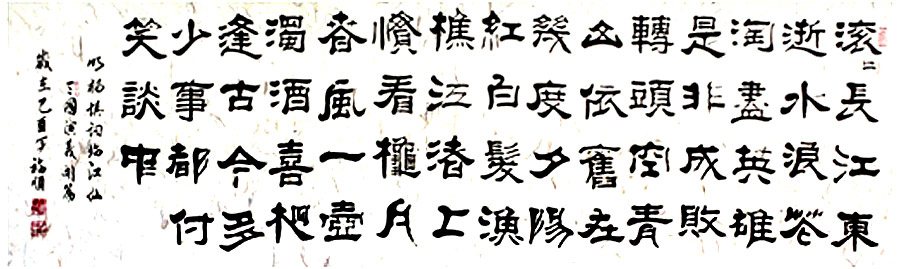 滾〻長江東
逝水浪花
淘盡英雄
是非成敗
轉頭空青
山依舊在
幾度夕陽
紅白髮漁
樵江渚上
慣看龝月
春風一壺
濁酒喜相
逢古今多
少事都付
笑談中
明楊慎詞臨江仙
三國演義開篇
歲在乙酉